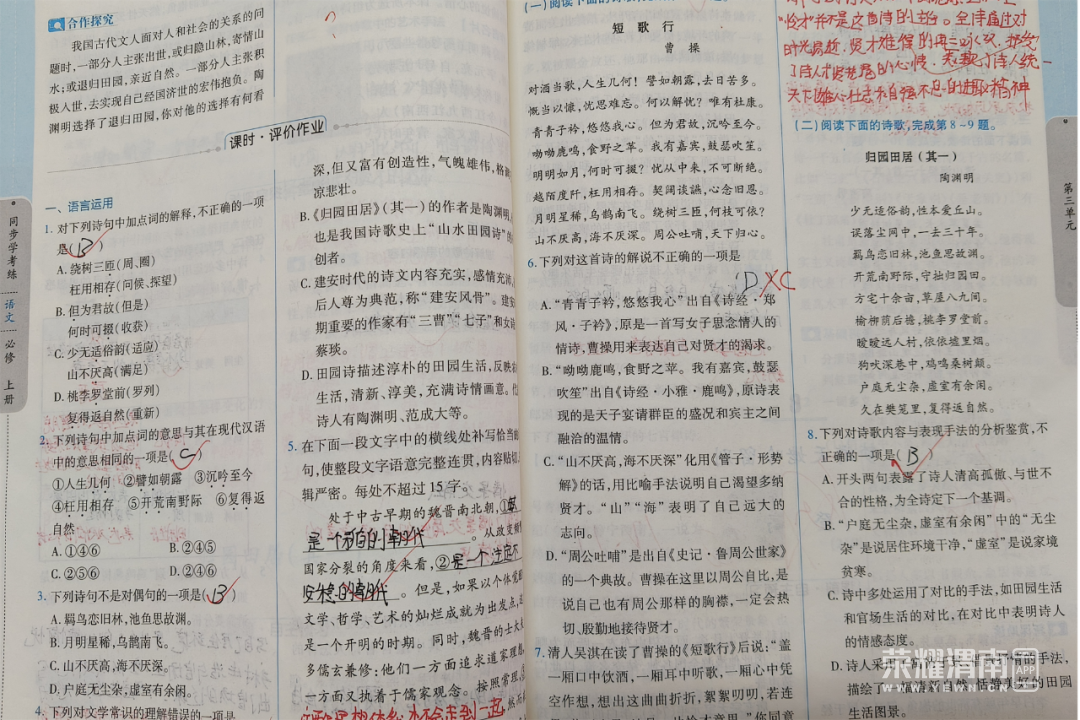 合作探究
我国古代文人面对人和社会的关系的问
题时,一部分人主张出世,或归隐山林,寄情山
水;或退归田园,亲近自然。一部分人主张积
极入世,去实现自己经国济世的宏伟抱负。陶
渊明选择了退归田园,你对他的选择有何看
课时·评价作业
一、语言运用
1. 对下列诗句中加点词的解释,不正确的一项
是( D )
A. 绕树三匝(周、圈)
枉用相存(问候、探望)
B. 但为君故(但是)
何时可掇(收获)
C. 少无适俗韵(适应)
山不厌高(满足)
D. 桃李罗堂前(罗列)
复得返自然(重新)
2. 下列诗句中加点词的意思与其在现代汉语
中的意思相同的一项是( C )
①人生几何 ②譬如朝露 ③沉吟至今
④枉用相存 ⑤开荒南野际 ⑥复得返
自然
A. ①④⑥ B. ②④⑤
C. ②⑤⑥ D. ②④⑥
3. 下列诗句不是对偶句的一项是( B )
A. 羁鸟恋旧林,池鱼思故渊。
B. 月明星稀,乌鹊南飞。
C. 山不厌高,海不厌深。
D. 户庭无尘杂,虚室有余闲。
4. 下列对文学常识的理解错误的一项是
深,但又富有创造性,气魄雄伟,格
凉悲壮。
B.《归园田居》(其一)的作者是陶渊明
也是我国诗歌史上“山水田园诗”的
创者。
C. 建安时代的诗文内容充实,感情充
后人尊为典范,称“建安风骨”。建安
期重要的作家有“三曹”“七子”和女
蔡琰。
D. 田园诗描述淳朴的田园生活,反映
生活,清新、淳美,充满诗情画意。
诗人有陶渊明、范成大等。
5. 在下面一段文字中的横线处补写恰当
句,使整段文字语意完整连贯,内容贴切
辑严密。每处不超过 15 字。
处于中古早期的魏晋南北朝,①
是一个动荡的朝代。从政变频
国家分裂的角度来看,②是一个注定不
安稳的朝代。但是,如果以个体觉
文学、哲学、艺术的灿烂成就为出发点,
是一个开明的时期。同时,魏晋的士大
多儒玄兼修:他们一方面追求道家理想
一方面又执着于儒家观念。按照常理
(一) 阅读下面的诗歌
短歌行
曹操
对酒当歌,人生几何!譬如朝露,去日苦多。
慨当以慷,忧思难忘。何以解忧?唯有杜康。
青青子衿,悠悠我心。但为君故,沉吟至今。
呦呦鹿鸣,食野之苹。我有嘉宾,鼓瑟吹笙。
明明如月,何时可掇?忧从中来,不可断绝。
越陌度阡,枉用相存。契阔谈䜩,心念旧恩。
月明星稀,乌鹊南飞。绕树三匝,何枝可依?
山不厌高,海不厌深。周公吐哺,天下归心。
6. 下列对这首诗的解说不正确的一项是
( D C
A.“青青子衿,悠悠我心”出自《诗经·郑
风·子衿》,原是一首写女子思念情人的
情诗,曹操用来表达自己对贤才的渴求。
B.“呦呦鹿鸣,食野之苹。我有嘉宾,鼓瑟
吹笙”出自《诗经·小雅·鹿鸣》,原诗表
现的是天子宴请群臣的盛况和宾主之间
融洽的温情。
C.“山不厌高,海不厌深”化用《管子·形势
解》的话,用比喻手法说明自己渴望多纳
贤才。“山”“海”表明了自己远大的
志向。
D.“周公吐哺”是出自《史记·鲁周公世家》
的一个典故。曹操在这里以周公自比,是
说自己也有周公那样的胸襟,一定会热
切、殷勤地接待贤才。
7. 清人吴淇在读了曹操的《短歌行》后说:“盖
一厢口中饮酒,一厢耳中听歌,一厢心中凭
空作想,想出这曲曲折折,絮絮叨叨,若连
天下雄心壮志和自强不息的进取精神
(二) 阅读下面的诗歌,完成第 8~9 题。
归园田居(其一)
陶渊明
少无适俗韵,性本爱丘山。
误落尘网中,一去三十年。
羁鸟恋旧林,池鱼思故渊。
开荒南野际,守拙归园田。
方宅十余亩,草屋八九间。
榆柳荫后檐,桃李罗堂前。
暧暧远人村,依依墟里烟。
狗吠深巷中,鸡鸣桑树颠。
户庭无尘杂,虚室有余闲。
久在樊笼里,复得返自然。
8. 下列对诗歌内容与表现手法的分析鉴赏,不
正确的一项是( B )
A. 开头两句表露了诗人清高孤傲、与世不
合的性格,为全诗定下一个基调。
B.“户庭无尘杂,虚室有余闲”中的“无尘
杂”是说居住环境干净,“虚室”是说家境
贫寒。
C. 诗中多处运用了对比的手法,如田园生活
和官场生活的对比,在对比中表明诗人
的情感态度。
D. 诗人采用
描绘了一幅清新自然、恬静美好的田园
生活图景。
同步学考练
语文
必修
上册
第三单元
荣耀渭南网
WWW.YEWN.CN